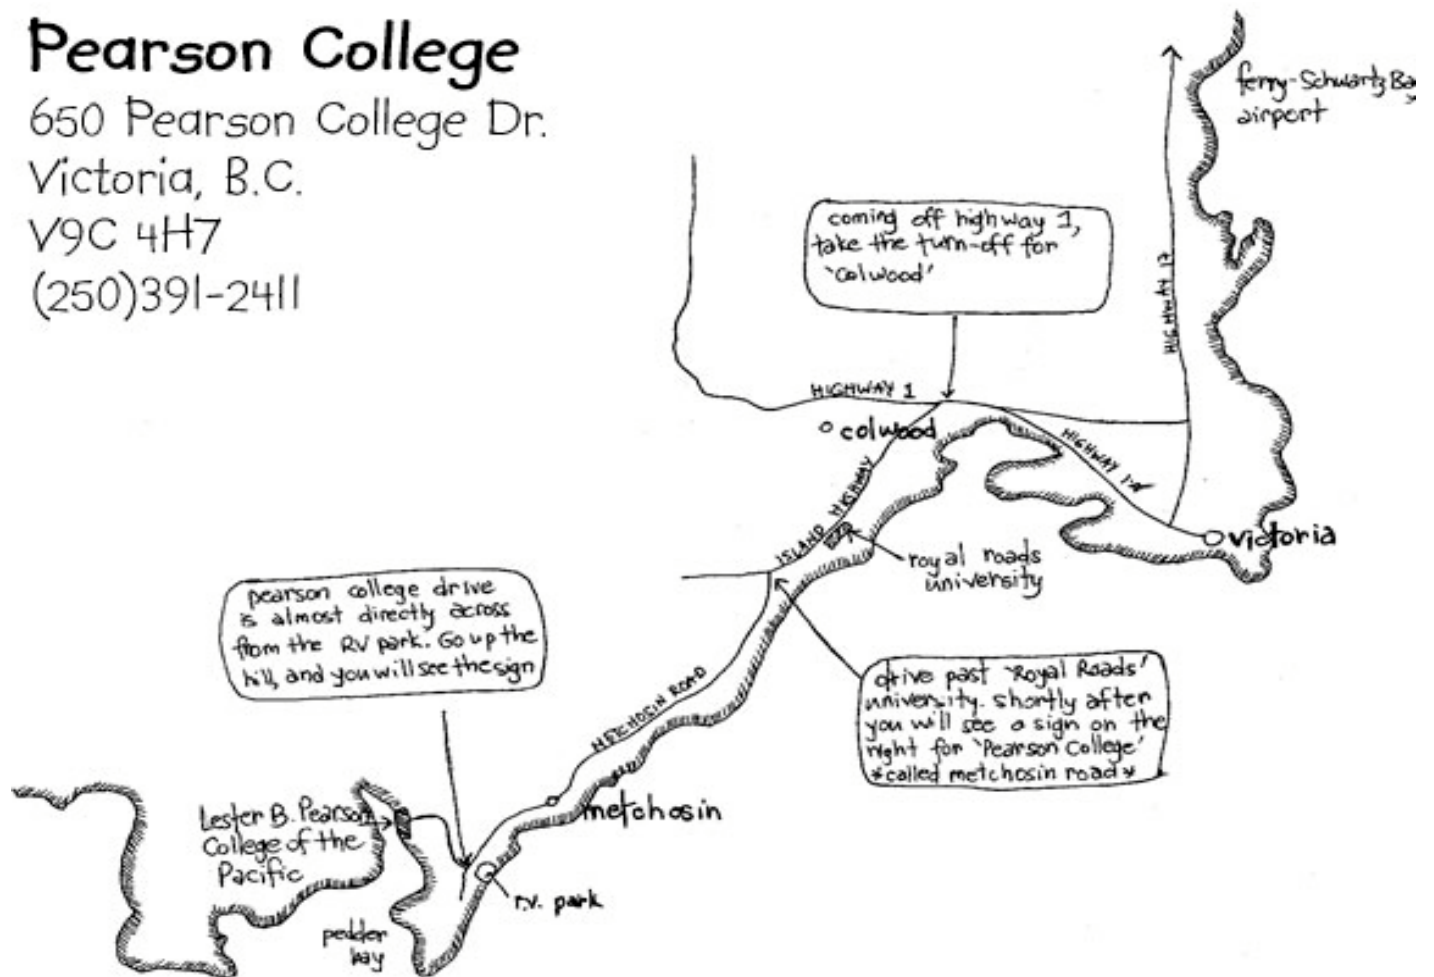 Pearson College
650 Pearson College Dr.
Victoria, B.C.
V9C 4H7
(250)391-2411
ferry-Schwartz Bay
airport
coming off highway 1,
take the turn-off for
'Colwood'
HIGHWAY 17
HIGHWAY 1
colwood
HIGHWAY 1-A
ISLAND HIGHWAY
victoria
royal roads
university
pearson college drive
is almost directly across
from the RV park. Go up the
hill, and you will see the sign
drive past 'Royal Roads'
university. shortly after
you will see a sign on the
right for 'Pearson College'
*called metchosin road*
METCHOSIN ROAD
metchosin
Lester B. Pearson
College of the
Pacific
r.v. park
pedder
bay